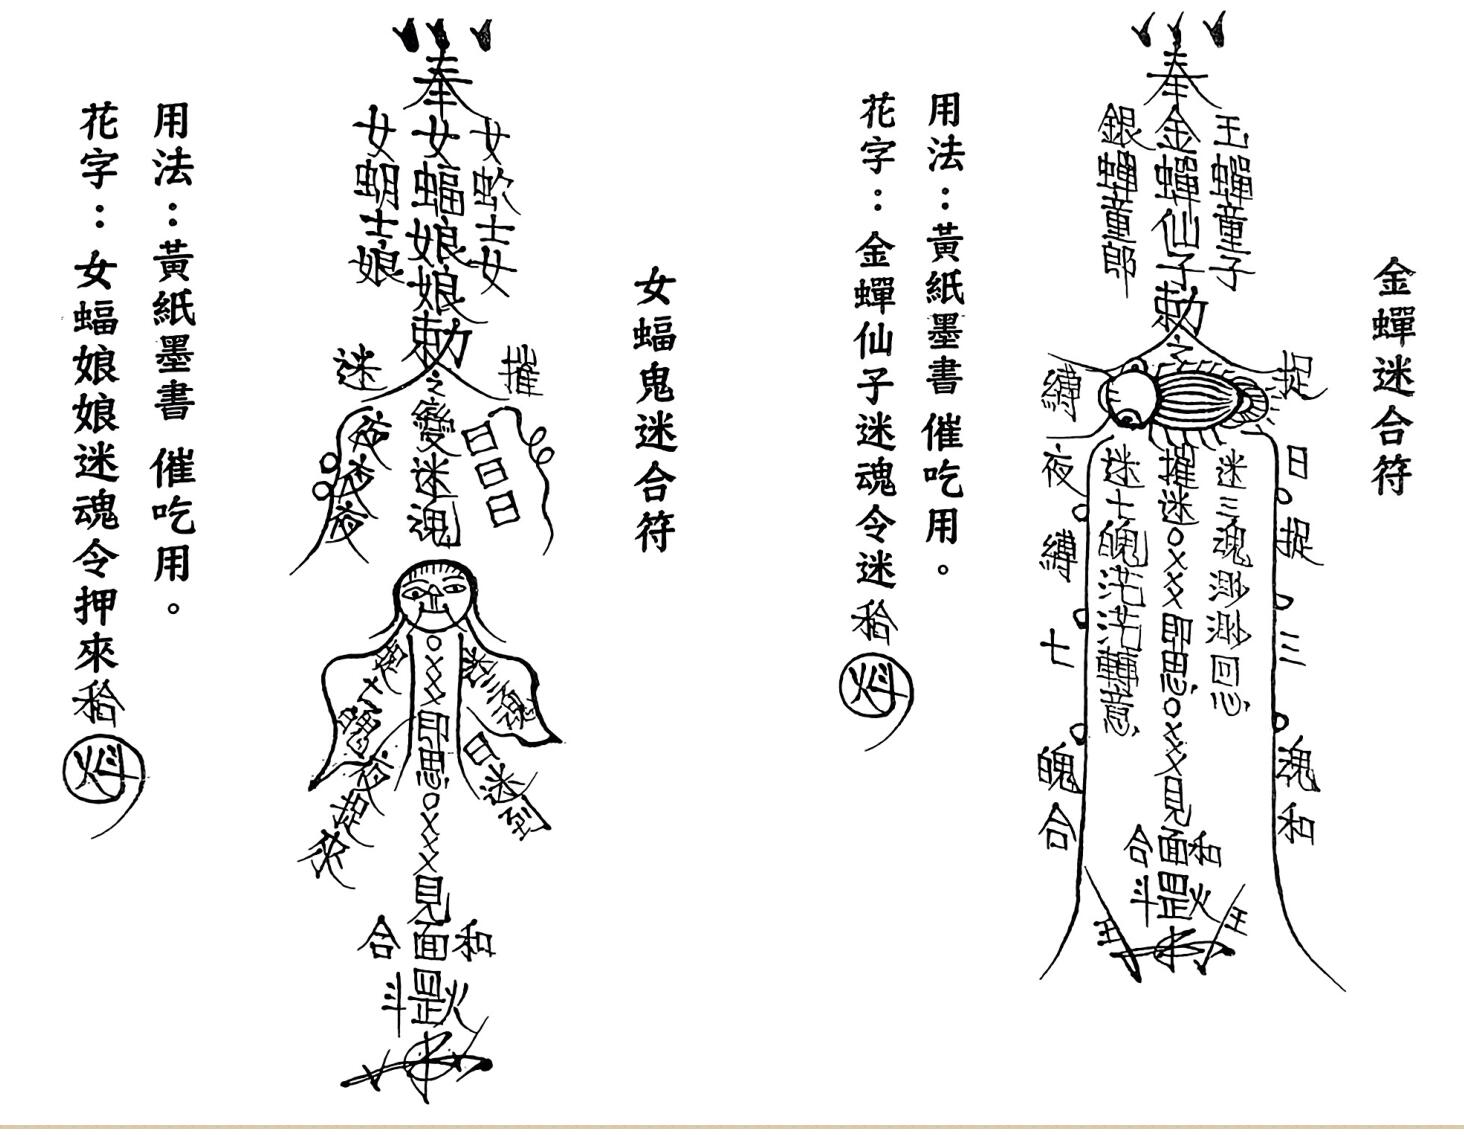 金蟬迷合符
奉
玉蟬童子
金蟬仙子
銀蟬童郎
勅
之
捉
縛
日捉三魂和
迷三魂渺渺回思
摧迷〇××即思〇××見
迷七魄茫茫轉意
夜縛七魄合
和
面
合
火
罡
斗
王
王
用法：黃紙墨書 催吃用。
花字：金蟬仙子迷魂令迷
女蝠鬼迷合符
奉
女蚊士女
女蝠娘娘
女蚏士娘
勅
摧
迷
之變迷魂
日日日
夜夜夜
〇××即思〇×××見
迷三魂
日迷到
夜捉來
和
面
合
火
罡
斗
用法：黃紙墨書 催吃用。
花字：女蝠娘娘迷魂令押來